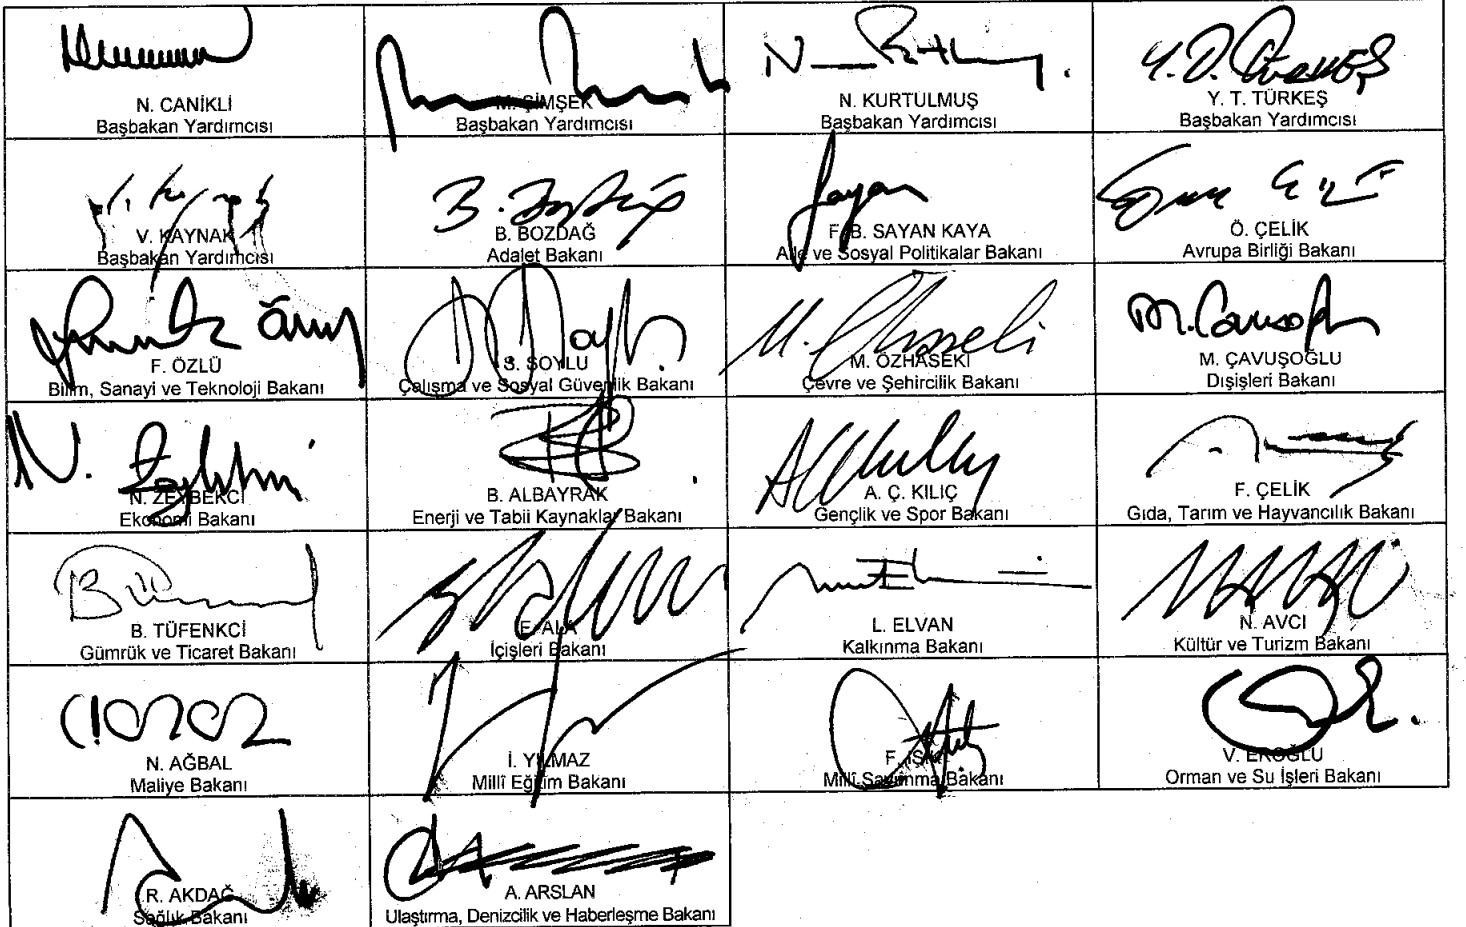 N. CANİKLİ
Başbakan Yardımcısı
M. ŞİMŞEK
Başbakan Yardımcısı
N. KURTULMUŞ
Başbakan Yardımcısı
Y. T. TÜRKEŞ
Başbakan Yardımcısı
V. KAYNAK
Başbakan Yardımcısı
B. BOZDAĞ
Adalet Bakanı
F. B. SAYAN KAYA
Aile ve Sosyal Politikalar Bakanı
Ö. ÇELİK
Avrupa Birliği Bakanı
F. ÖZLÜ
Bilim, Sanayi ve Teknoloji Bakanı
S. SOYLU
Çalışma ve Sosyal Güvenlik Bakanı
M. ÖZHASEKİ
Çevre ve Şehircilik Bakanı
M. ÇAVUŞOĞLU
Dışişleri Bakanı
N. ZEYBEKCİ
Ekonomi Bakanı
B. ALBAYRAK
Enerji ve Tabii Kaynaklar Bakanı
A. Ç. KILIÇ
Gençlik ve Spor Bakanı
F. ÇELİK
Gıda, Tarım ve Hayvancılık Bakanı
B. TÜFENKCİ
Gümrük ve Ticaret Bakanı
E. ALA
İçişleri Bakanı
L. ELVAN
Kalkınma Bakanı
N. AVCI
Kültür ve Turizm Bakanı
N. AĞBAL
Maliye Bakanı
İ. YILMAZ
Millî Eğitim Bakanı
F. IŞIK
Millî Savunma Bakanı
V. EROĞLU
Orman ve Su İşleri Bakanı
R. AKDAĞ
Sağlık Bakanı
A. ARSLAN
Ulaştırma, Denizcilik ve Haberleşme Bakanı